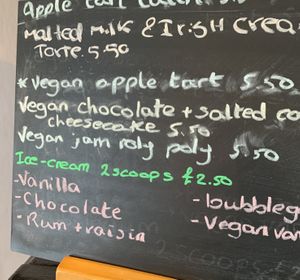 apple tart
Malted Milk & Irish Crea
Torte 5.50
* Vegan apple tart 5.50
Vegan chocolate + salted co
cheesecake 5.50
Vegan jam roly poly 5.50
Ice-cream 2 scoops £2.50
-Vanilla
-Chocolate
-Rum + raisin
- bubbleg
- Vegan van